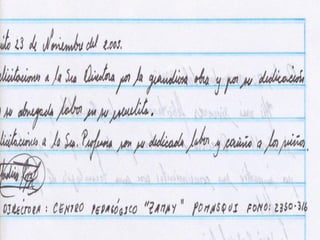 ito 23 de Noviembre del 2.005.
licitaciones a la Sra Directora por la grandiosa obra y por su dedicación
su abnegada labor en su escuelita.
licitaciones a la Sra. Profesora por su dedicada labor y cariño a los niños.
DIRECTORA: CENTRO PEDAGÓGICO "ZAMAY" POMASQUI FONO: 2350-316